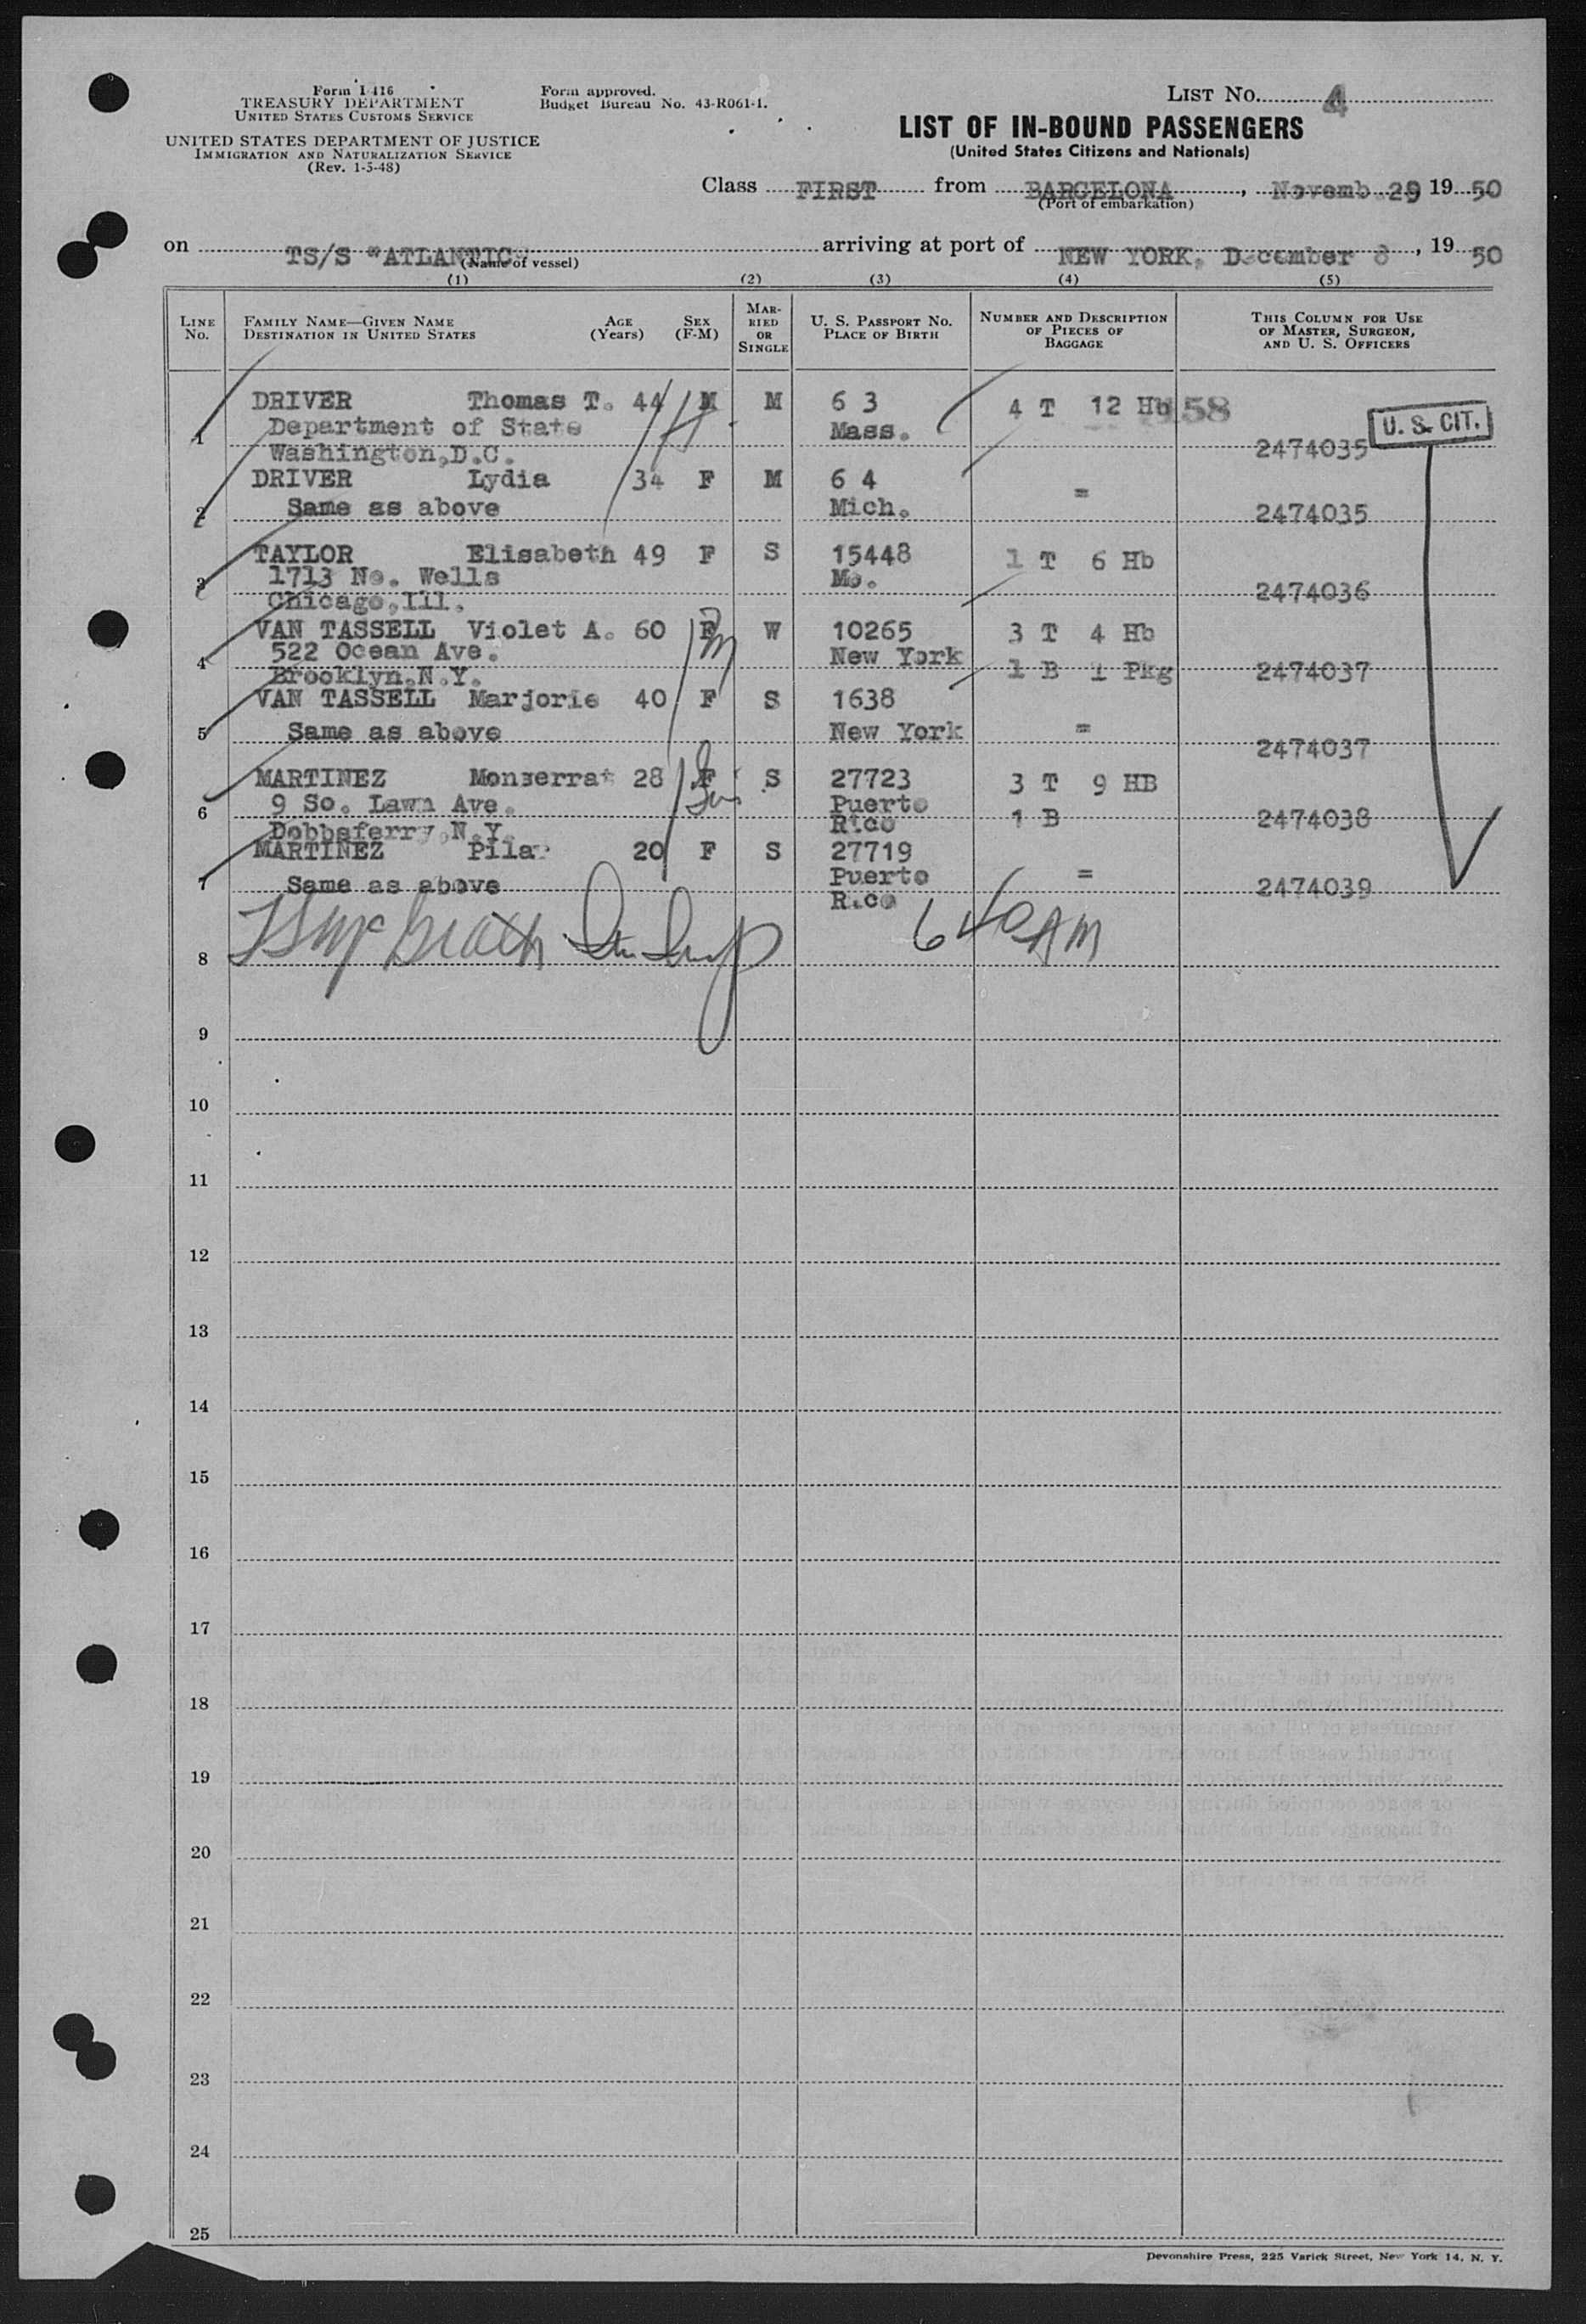 Form I-416
TREASURY DEPARTMENT
UNITED STATES CUSTOMS SERVICE
UNITED STATES DEPARTMENT OF JUSTICE
IMMIGRATION AND NATURALIZATION SERVICE
(Rev. 1-5-48)
Form approved.
Budget Bureau No. 43-R061-1.
LIST No. 4
LIST OF IN-BOUND PASSENGERS
(United States Citizens and Nationals)
Class FIRST from BARCELONA, Novemb. 29 19 50
(Port of embarkation)
on TS/S "ATLANTIC" arriving at port of NEW YORK, December 8, 19 50
(Name of vessel)
(1) (2) (3) (4) (5)
LINE No. FAMILY NAME—GIVEN NAME DESTINATION IN UNITED STATES AGE (Years) SEX (F-M) MARRIED OR SINGLE U. S. PASSPORT No. PLACE OF BIRTH NUMBER AND DESCRIPTION OF PIECES OF BAGGAGE THIS COLUMN FOR USE OF MASTER, SURGEON, AND U. S. OFFICERS
DRIVER Thomas T. 44 M M 6 3 4 T 12 Hb 158
1 Department of State Mass. U. S. CIT.
Washington,D.C. 2474035
DRIVER Lydia 34 F M 6 4 =
2 Same as above Mich. 2474035
TAYLOR Elisabeth 49 F S 15448 1 T 6 Hb
3 1713 No. Wells Mo. 2474036
Chicago,Ill.
VAN TASSELL Violet A. 60 F W 10265 3 T 4 Hb
4 522 Ocean Ave. New York 1 B 1 Pkg 2474037
Brooklyn.N.Y.
VAN TASSELL Marjorie 40 F S 1638
5 Same as above New York = 2474037
MARTINEZ Monserrat 28 F S 27723 3 T 9 HB
6 9 So. Lawn Ave. Puerto Rico 1 B 2474038
Dobbsferry,N.Y.
MARTINEZ Pilar 20 F S 27719
7 Same as above Puerto Rico = 2474039
8 640AM
9
10
11
12
13
14
15
16
17
18
19
20
21
22
23
24
25
Devonshire Press, 225 Varick Street, New York 14, N. Y.